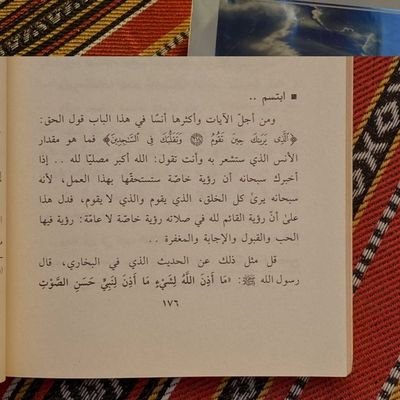 ▪ ابتسم ..
ومن أجلّ الآيات وأكثرها أنسًا في هذا الباب قول الحق:
﴿الَّذِي يَرَاكَ حِينَ تَقُومُ ۝٢١٨ وَتَقَلُّبَكَ فِي السَّاجِدِينَ﴾ فما هو مقدار
الأنس الذي ستشعر به وأنت تقول: الله أكبر مصليًا لله .. إذا
أخبرك سبحانه أن رؤية خاصّة ستستحقّها بهذا العمل، لأنه
سبحانه يرىٰ كل الخلق، الذي يقوم والذي لا يقوم، فدل هذا
علىٰ أنّ رؤية القائم لله في صلاته رؤية خاصّة لا عامّة: رؤية فيها
الحب والقبول والإجابة والمغفرة ..
قل مثل ذلك عن الحديث الذي في البخاري، قال
رسول الله ﷺ: «مَا أَذِنَ اللَّهُ لِشَيْءٍ مَا أَذِنَ لِنَبِيٍّ حَسَنِ الصَّوْتِ
١٧٦